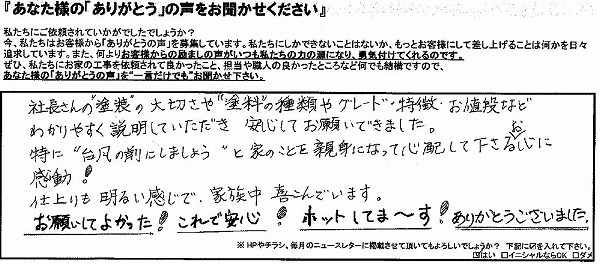 『あなた様の「ありがとう」の声をお聞かせください』
私たちにご依頼されていかがでしたでしょうか？
今、私たちはお客様から「ありがとうの声」を募集しています。私たちにしかできないことはないか、もっとお客様にして差し上げることは何かを日々
追求しています。また、何よりお客様からの励ましの声がいつも私たちの力の源になり、勇気付けてくれるのです。
ぜひ、私たちにお家の工事を依頼されて良かったこと、担当や職人の良かったところなど何でも結構ですので、
あなた様の「ありがとうの声」を“一言だけでも”お聞かせ下さい。
社長さんの"塗装"の大切さや"塗料"の種類やグレード・特徴・お値段など
わかりやすく説明していただき 安心してお願いできました。
特に"台風の前にしましょう"と家のことを親身になって心配して下さるお心に
感動！
仕上りも明るい感じで、家族中喜こんでいます。
お願いしてよかった！これで安心！ホットしてま〜す！ありがとうございました。
※HPやチラシ、毎月のニュースレターに掲載させて頂いてもよろしいでしょうか？ 下記に☑を入れて下さい。
☑はい □イニシャルならOK □ダメ